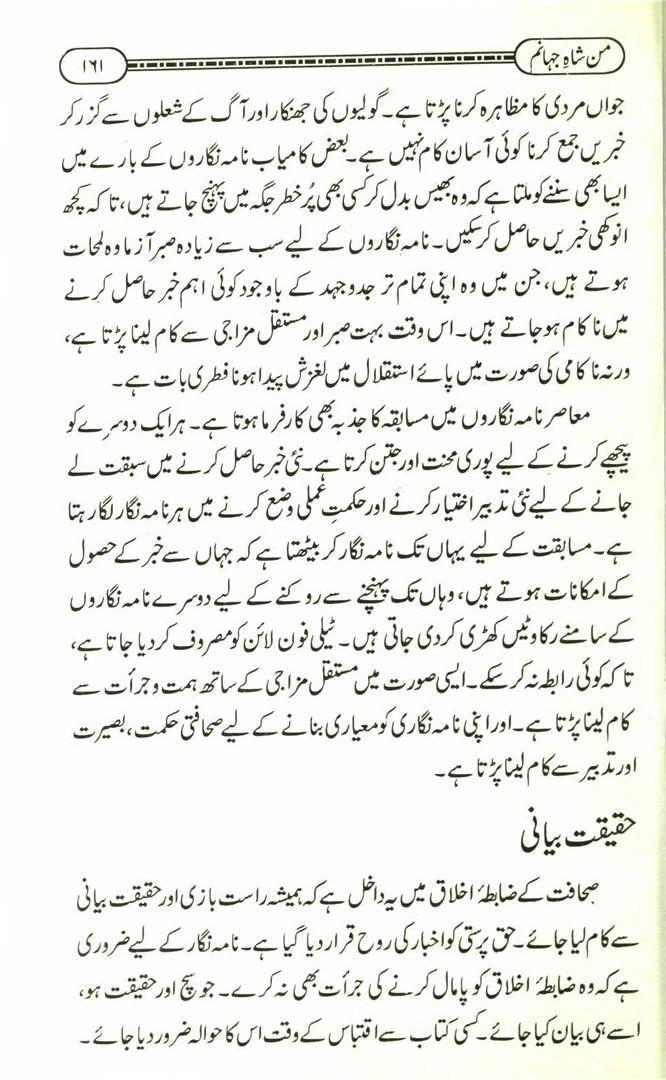 من شاہِ جہانم
۱۶۱
جواں مردی کا مظاہرہ کرنا پڑتا ہے۔ گولیوں کی جھنکار اور آگ کے شعلوں سے گزر کر
خبریں جمع کرنا کوئی آسان کام نہیں ہے۔ بعض کامیاب نامہ نگاروں کے بارے میں
ایسا بھی سننے کو ملتا ہے کہ وہ بھیس بدل کر کسی بھی پُر خطر جگہ میں پہنچ جاتے ہیں، تاکہ کچھ
انوکھی خبریں حاصل کر سکیں۔ نامہ نگاروں کے لیے سب سے زیادہ صبر آزما وہ لمحات
ہوتے ہیں، جن میں وہ اپنی تمام تر جدوجہد کے باوجود کوئی اہم خبر حاصل کرنے
میں ناکام ہو جاتے ہیں۔ اس وقت بہت صبر اور مستقل مزاجی سے کام لینا پڑتا ہے،
ورنہ ناکامی کی صورت میں پائے استقلال میں لغزش پیدا ہونا فطری بات ہے۔
معاصر نامہ نگاروں میں مسابقہ کا جذبہ بھی کارفرما ہوتا ہے۔ ہر ایک دوسرے کو
پیچھے کرنے کے لیے پوری محنت اور جتن کرتا ہے۔ نئی خبر حاصل کرنے میں سبقت لے
جانے کے لیے نئی تدبیر اختیار کرنے اور حکمتِ عملی وضع کرنے میں ہر نامہ نگار لگا رہتا
ہے۔ مسابقت کے لیے یہاں تک نامہ نگار کر بیٹھتا ہے کہ جہاں سے خبر کے حصول
کے امکانات ہوتے ہیں، وہاں تک پہنچنے سے روکنے کے لیے دوسرے نامہ نگاروں
کے سامنے رکاوٹیں کھڑی کر دی جاتی ہیں۔ ٹیلی فون لائن کو مصروف کر دیا جاتا ہے،
تاکہ کوئی رابطہ نہ کر سکے۔ ایسی صورت میں مستقل مزاجی کے ساتھ ہمت و جرأت سے
کام لینا پڑتا ہے۔ اور اپنی نامہ نگاری کو معیاری بنانے کے لیے صحافتی حکمت، بصیرت
اور تدبیر سے کام لینا پڑتا ہے۔
حقیقت بیانی
صحافت کے ضابطۂ اخلاق میں یہ داخل ہے کہ ہمیشہ راست بازی اور حقیقت بیانی
سے کام لیا جائے۔ حق پرستی کو اخبار کی روح قرار دیا گیا ہے۔ نامہ نگار کے لیے ضروری
ہے کہ وہ ضابطۂ اخلاق کو پامال کرنے کی جرأت بھی نہ کرے۔ جو سچ اور حقیقت ہو،
اسے ہی بیان کیا جائے۔ کسی کتاب سے اقتباس کے وقت اس کا حوالہ ضرور دیا جائے۔